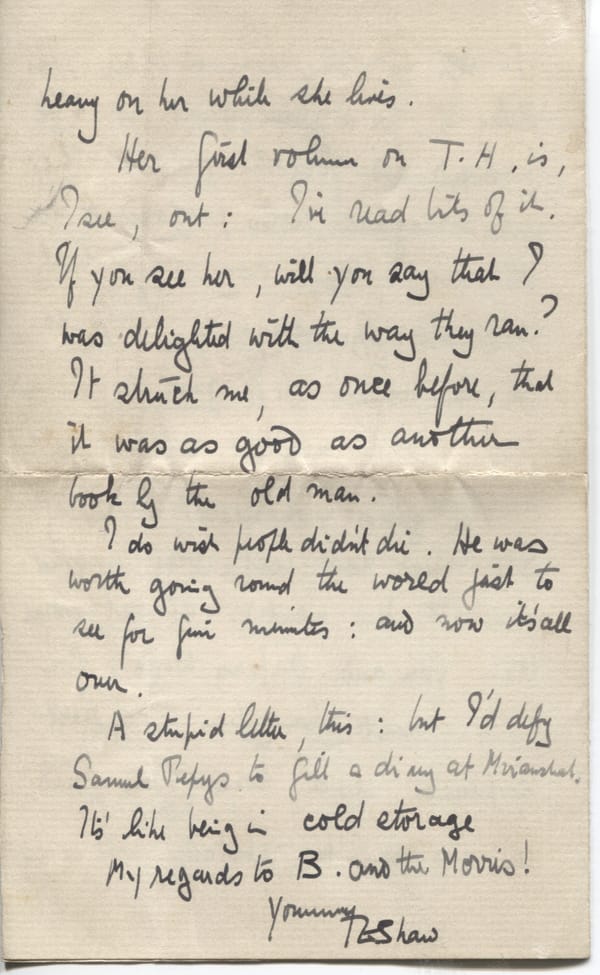 heavy on her while she lives.
Her first volume on T.H. is,
I see, out: I've read bits of it.
If you see her, will you say that I
was delighted with the way they ran?
It struck me, as once before, that
it was as good as another
book by the old man.
I do wish people didn't die. He was
worth going round the world just to
see for five minutes: and now it's all
over.
A stupid letter, this: but I'd defy
Samuel Pepys to fill a diary at Miranshah.
It's like being in cold storage
My regards to B. and the Morris!
Yours
TEShaw